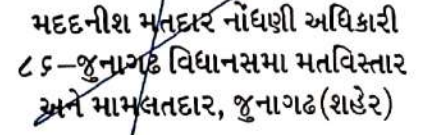 મદદનીશ મતદાર નોંધણી અધિકારી
૮૬-જુનાગઢ વિધાનસભા મતવિસ્તાર
અને મામલતદાર, જુનાગઢ(શહેર)